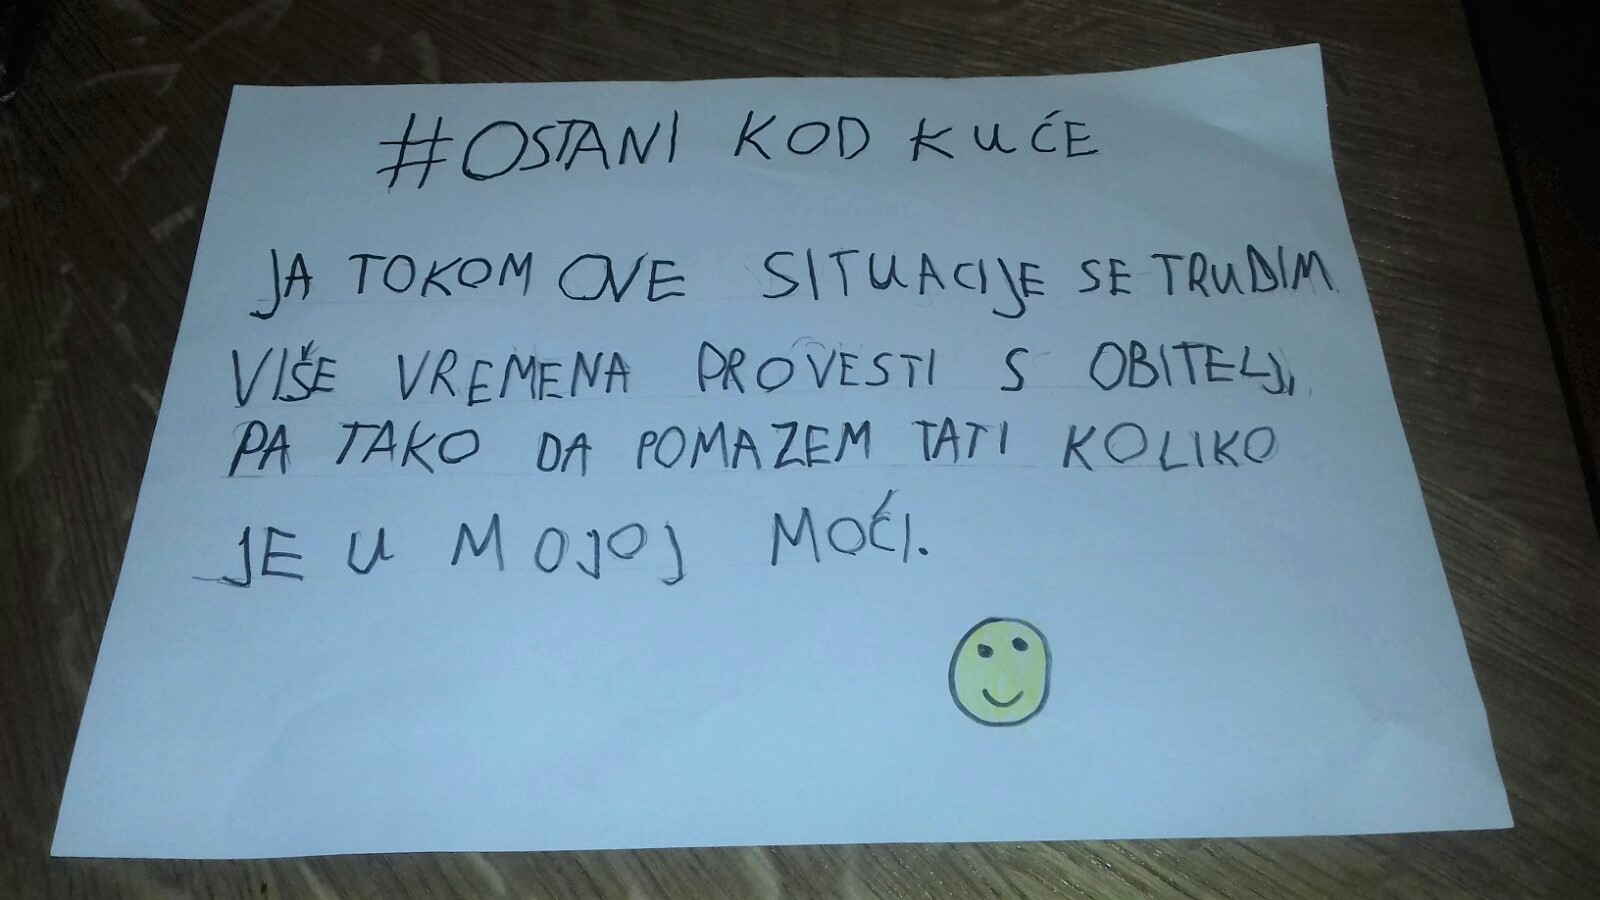 #OSTANI KOD KUĆE
JA TOKOM OVE SITUACIJE SE TRUDIM
VIŠE VREMENA PROVESTI S OBITELJI,
PA TAKO DA POMAZEM TATI KOLIKO
JE U MOJOJ MOĆI.